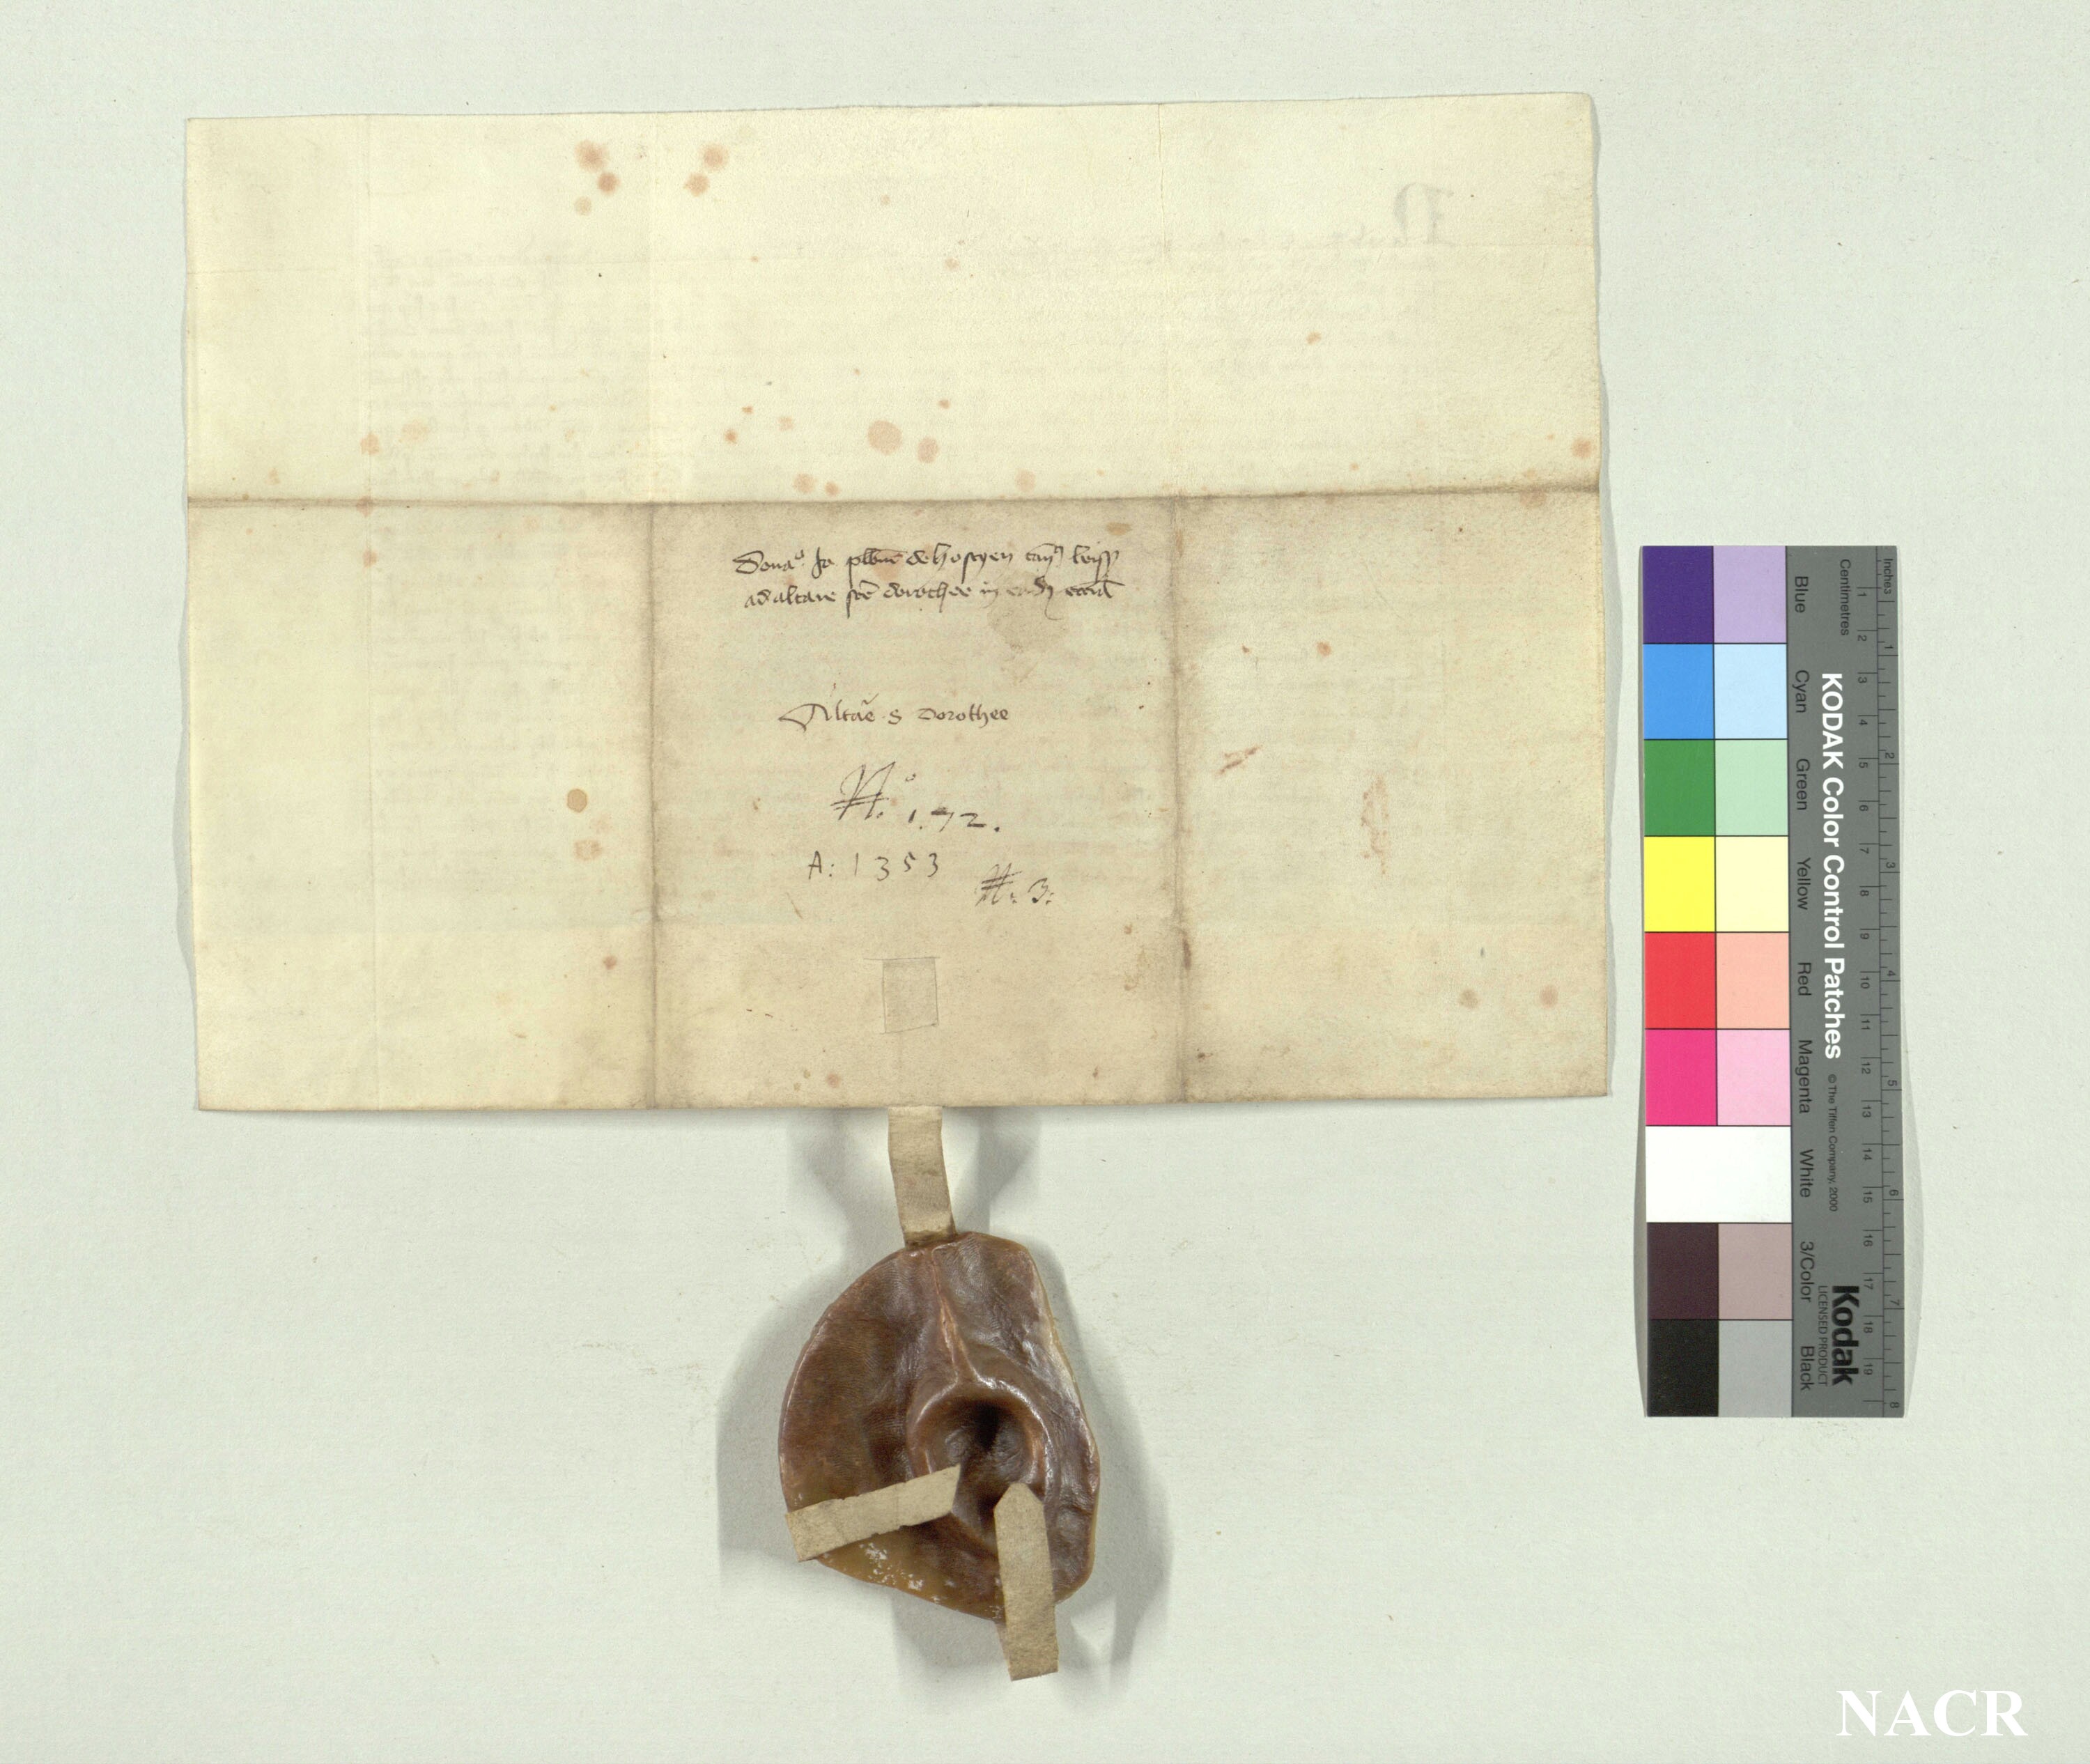 Donaᵒ Jo plbni de hostyen can
ad altare sce dorothee in eadē eccia
Altāe S Dorothee
N.º 172.
A: 1353
N: 3:
Inches
Centimetres
1 2 3 4 5 6 7 8
1 2 3 4 5 6 7 8 9 10 11 12 13 14 15 16 17 18 19
KODAK Color Control Patches © The Tiffen Company, 2000
Kodak
LICENSED PRODUCT
Blue Cyan Green Yellow Red Magenta White 3/Color Black
NACR